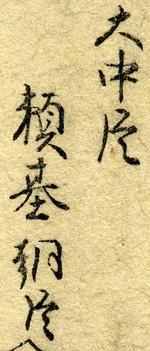 大中臣
頼基朝臣